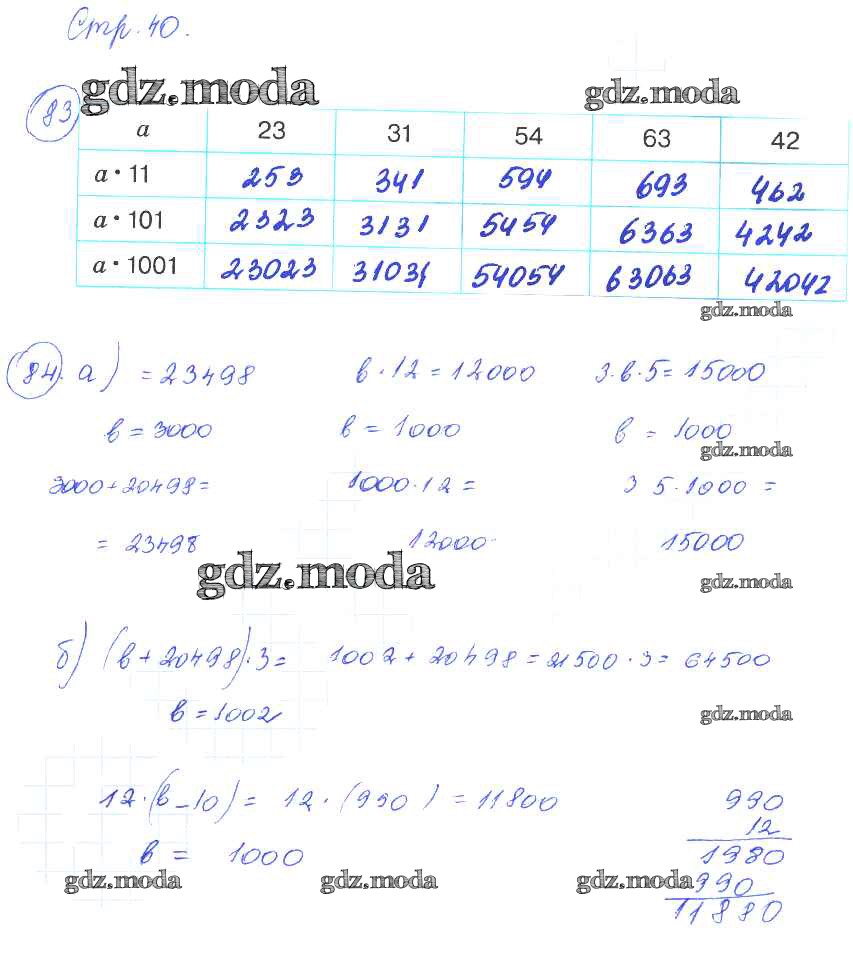 Стр. 40.
gdz.moda gdz.moda
83
a 23 31 54 63 42
a · 11 253 341 594 693 462
a · 101 2323 3131 5454 6363 4242
a · 1001 23023 31031 54054 63063 42042
gdz.moda
84. а) = 23498 в · 12 = 12000 3 · в · 5 = 15000
в = 3000 в = 1000 в = 1000
gdz.moda
3000 + 20498 = 1000 · 12 = 3 5 · 1000 =
= 23498 12000 15000
gdz.moda gdz.moda
б) (в + 20498) · 3 = 1002 + 20498 = 21500 · 3 = 64500
в = 1002
gdz.moda
12 · (в - 10) = 12 · (990) = 11800 990
12
в = 1000 1980
gdz.moda gdz.moda gdz.moda
990
11880